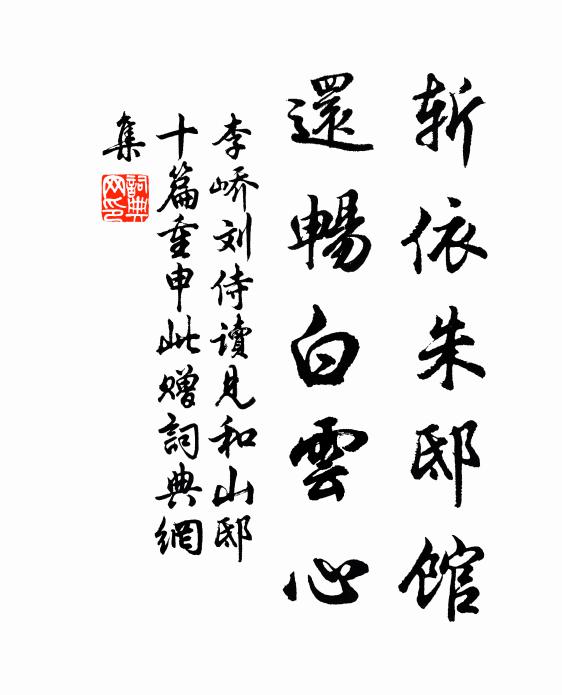 斩依朱邸馆
還暢白雲心
李峤刘侍讀見和山邸
十篇重申此赠詞典網
集
詞典
网印